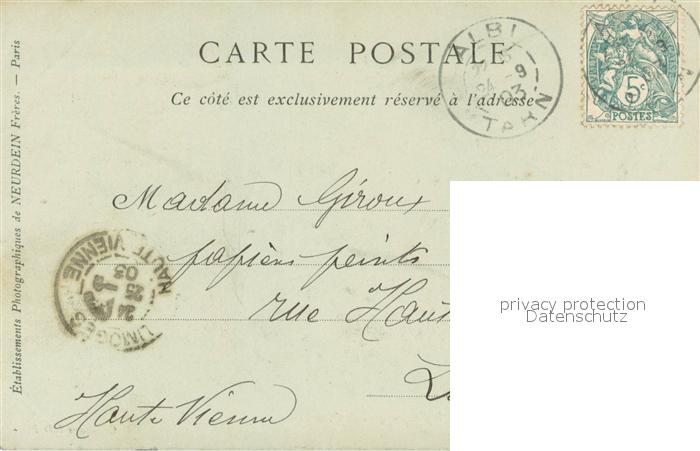 CARTE POSTALE
Ce côté est exclusivement réservé à l'adresse
ALBI
24 -9
03
TARN
5c
POSTES
Établissements Photographiques de NEURDEIN Frères. — Paris
Madame Giroux
papiers peints
rue Haut
Haute Vienne
LIMOGES
25
03
HAUTE VIENNE
privacy protection
Datenschutz